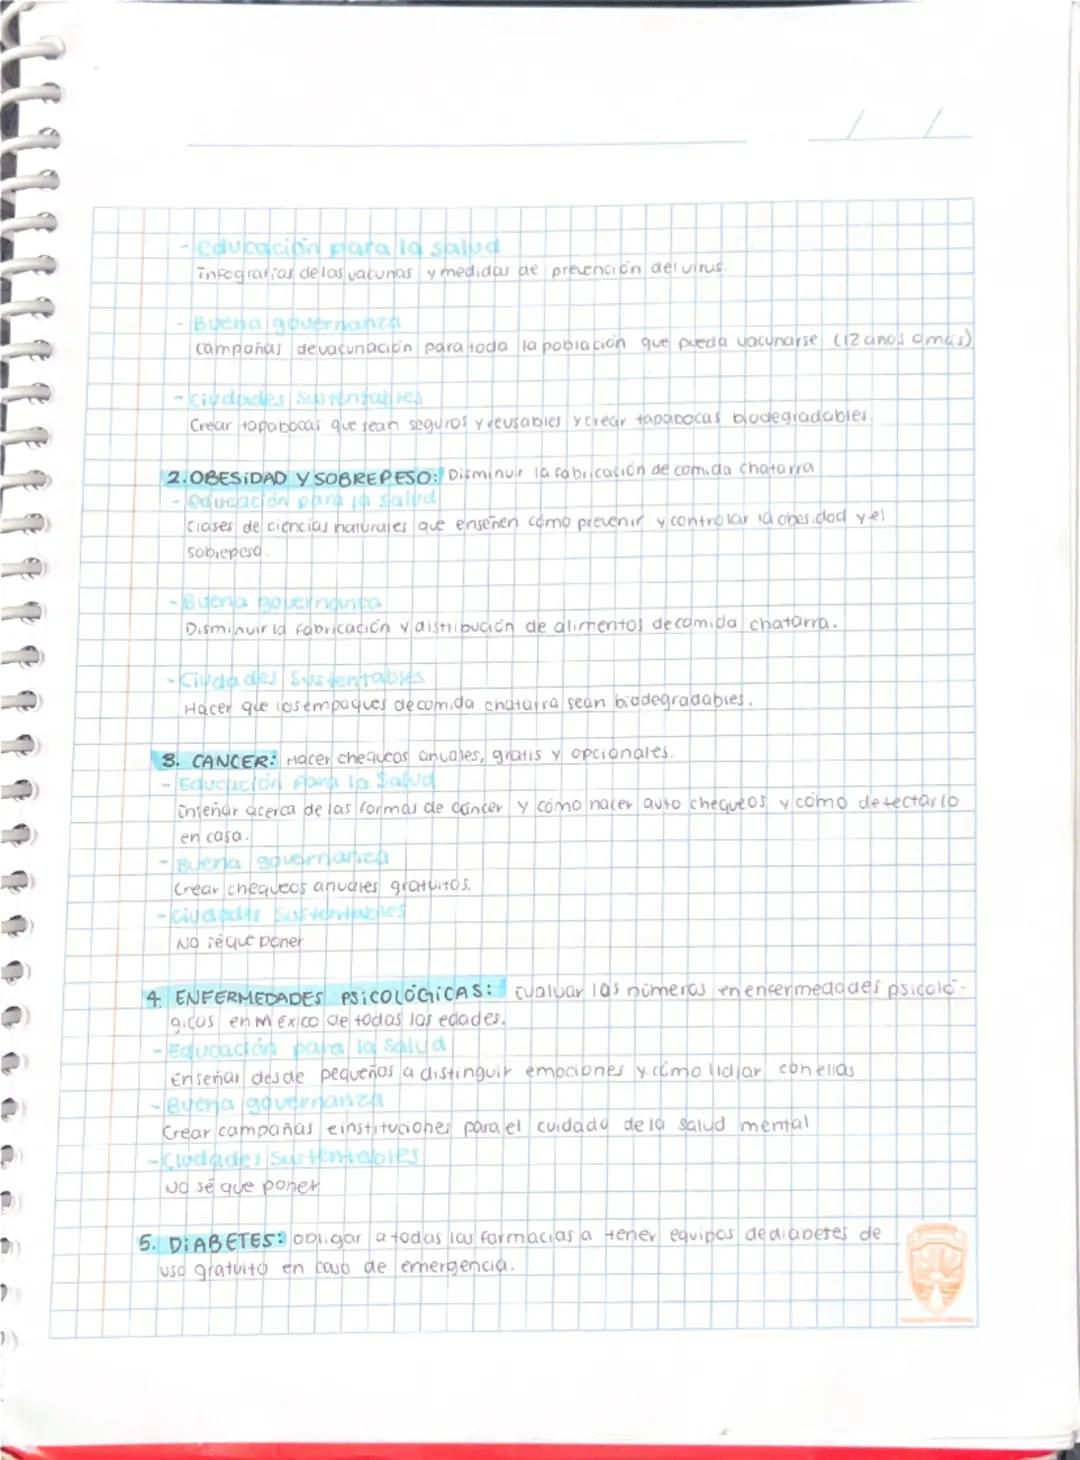 - Educación para la salud
Infografías de las vacunas y medidas de prevención del virus.
- Buena governanza
Campañas de vacunación para toda la población que pueda vacunarse (12 años o más)
- Ciudades Sustentables
Crear tapabocas que sean seguros y reusables y crear tapabocas biodegradables.
2. OBESIDAD Y SOBREPESO: Disminuir la fabricación de comida chatarra
- Educación para la salud
Clases de ciencias naturales que enseñen cómo prevenir y controlar la obesidad y el
sobrepeso.
- Buena governanza
Disminuir la fabricación y distribución de alimentos de comida chatarra.
- Ciudades Sustentables
Hacer que los empaques de comida chatarra sean biodegradables.
3. CANCER: Hacer chequeos anuales, gratis y opcionales.
- Educación para la Salud
Enseñar acerca de las formas de cáncer y cómo hacer auto chequeos y cómo detectarlo
en casa.
- Buena governanza
Crear chequeos anuales gratuitos.
- Ciudades Sustentables
No sé que poner
4. ENFERMEDADES PSICOLÓGICAS: Evaluar los números en enfermedades psicoló-
gicas en México de todas las edades.
- Educación para la salud
Enseñar desde pequeños a distinguir emociones y cómo lidiar con ellas
- Buena governanza
Crear campañas e instituciones para el cuidado de la salud mental
- Ciudades Sustentables
No sé que poner
5. DIABETES: Obligar a todas las farmacias a tener equipos de diabetes de
uso gratuito en caso de emergencia.